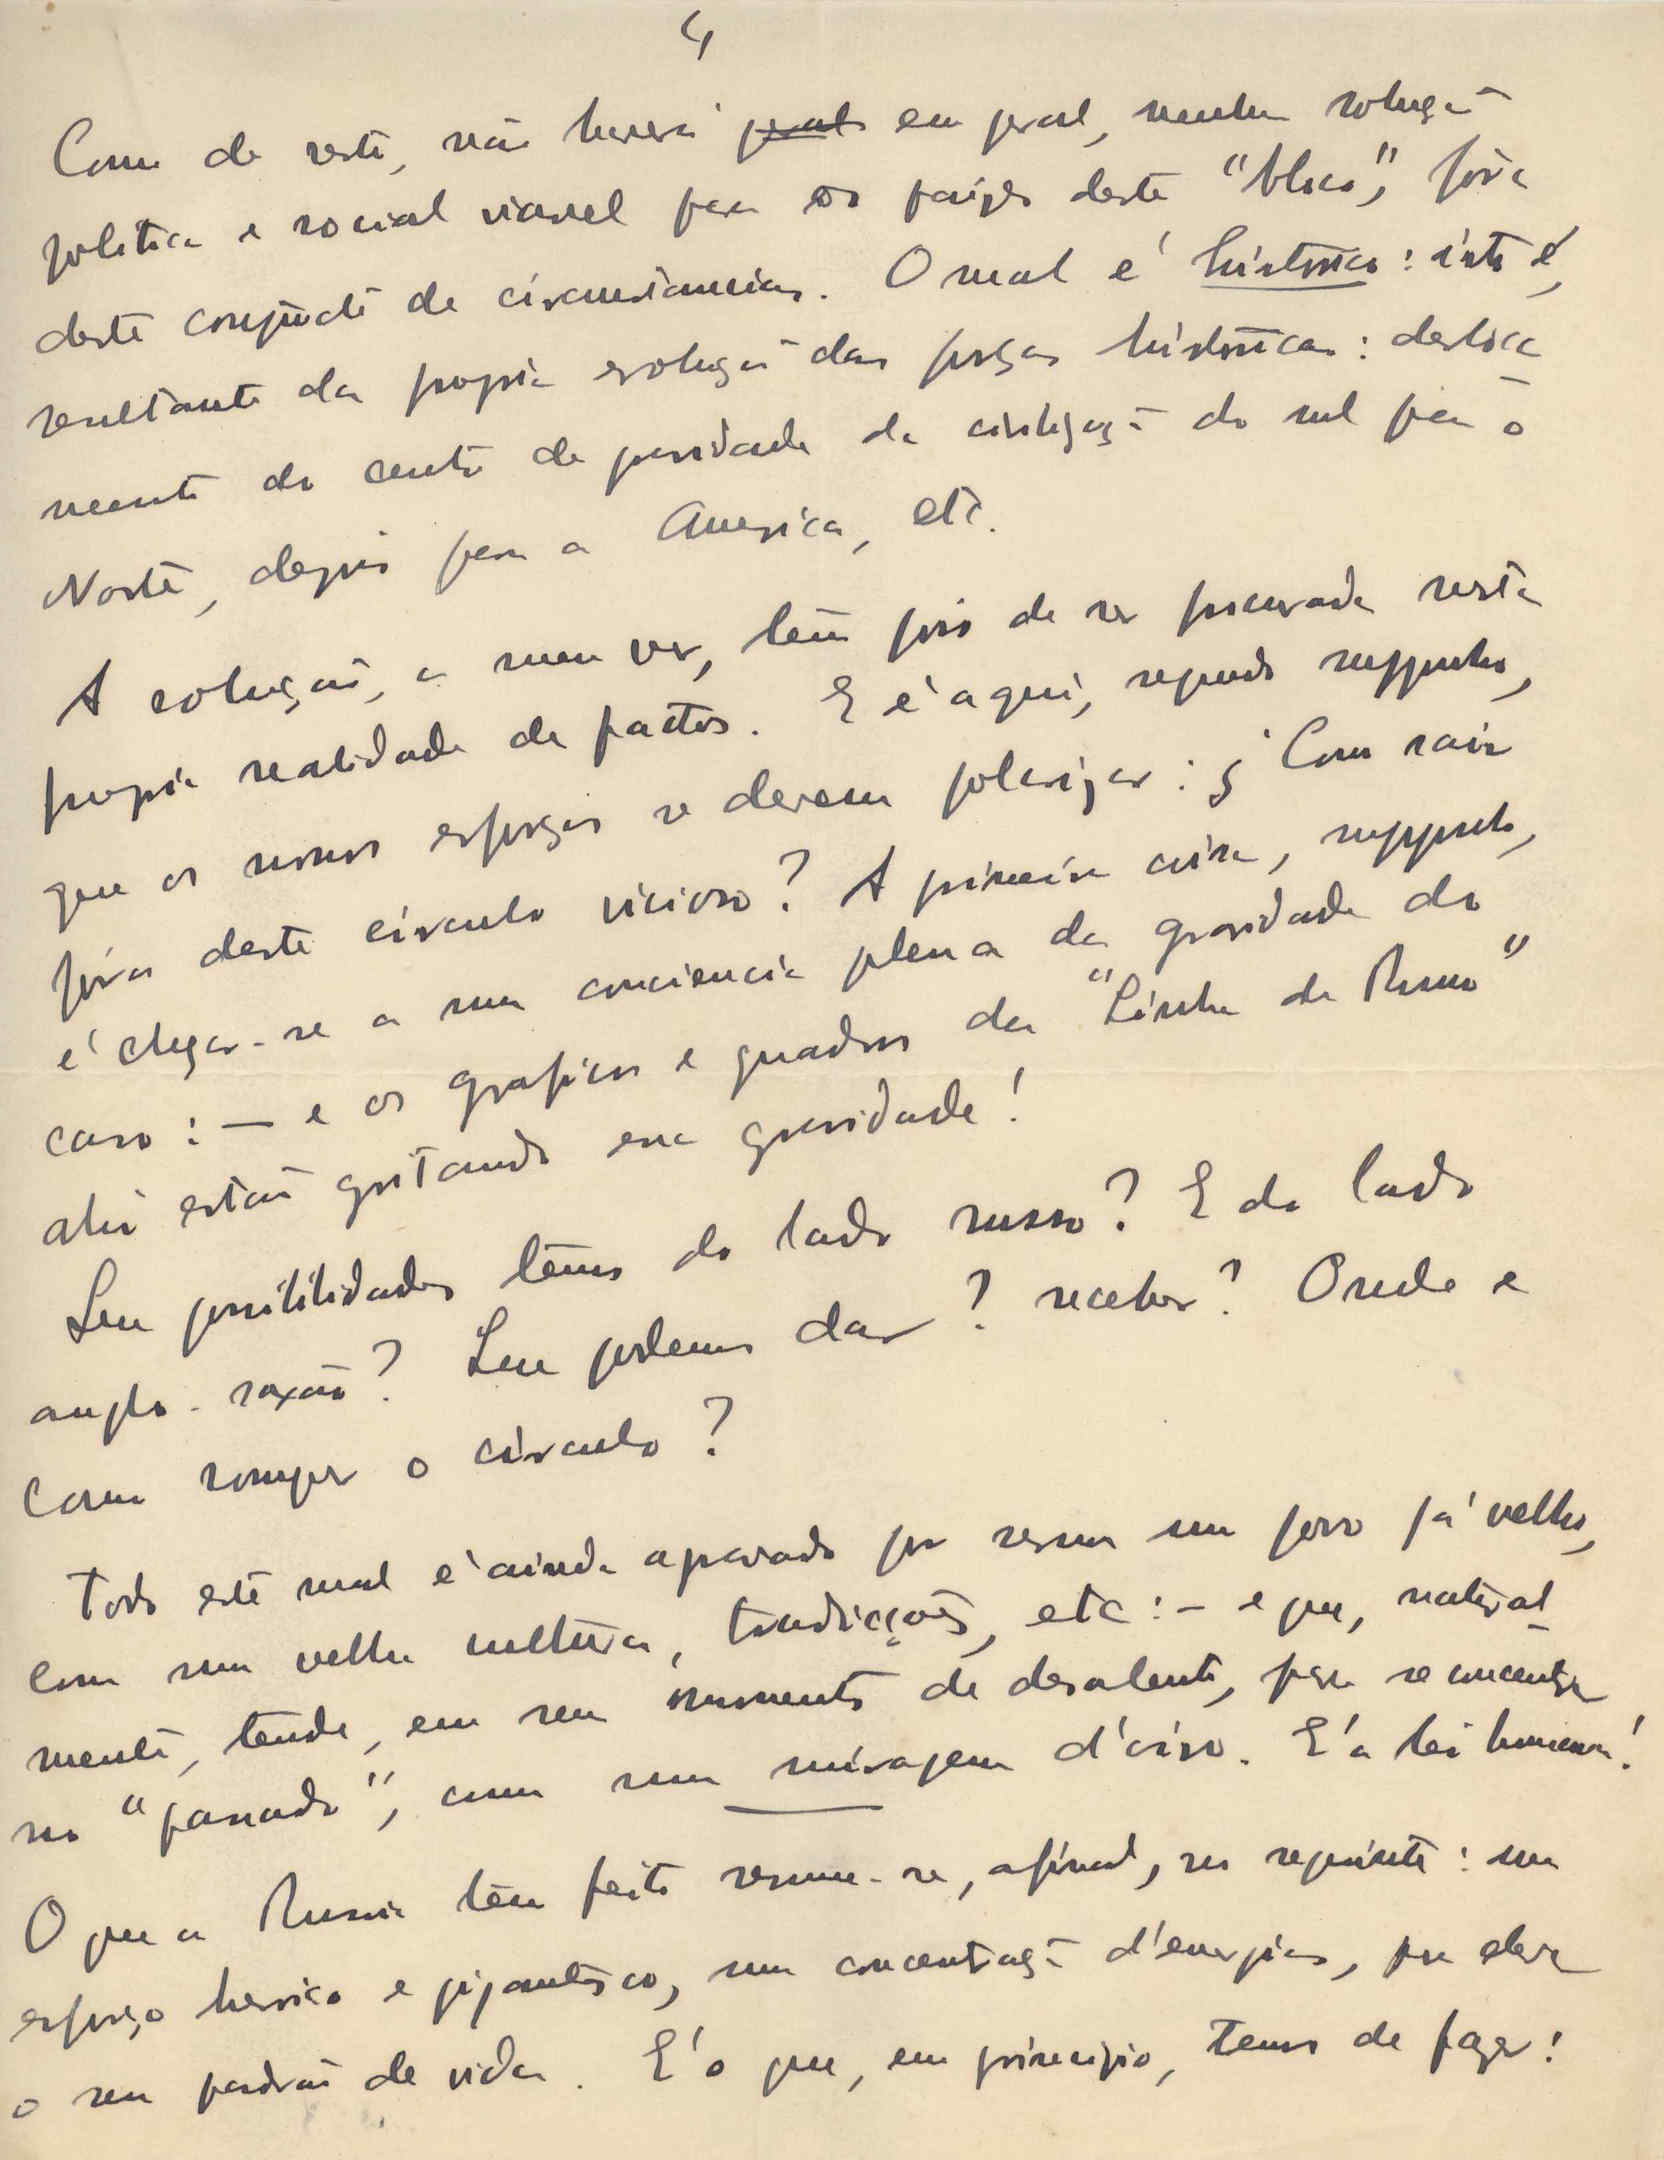 4
Como de resto, não haverá geral em geral, nenhuma solução
politica e social viavel para os paizes deste "bloco", fóra
deste conjuncto de circunstancias. O mal é historico: isto é,
resultante da propria evolução das forças historicas: desloca
mento do centro de gravidade da civilização do sul para o
Norte, depois para a America, etc.
A solução, a meu ver, tem pois de ser procurada nesta
propria realidade de factos. E é aqui, segundo supponho,
que os nossos esforços se devem polarizar: ¿ Como sair
fóra deste circulo vicioso? A primeira coisa, supponho,
é chegar-se a uma consciencia plena da gravidade do
caso: — e os graficos e quadros da "Linha de Rumo"
ahi estão gritando essa gravidade!
Que possibilidades têmos do lado russo? E do lado
anglo-saxão? Que podemos dar? receber? Onde e
Como romper o circulo?
Todo este mal é ainda agravado por sermos um povo já velho,
com uma velha cultura, tradicções, etc: — e que, natural
mente, tende, em seu momento de desalento, para se concentrar
no "passado", como uma miragem d'oiro. É a lei humana!
O que a Russia tem feito resume-se, afinal, no seguinte: um
esforço heroico e gigantesco, uma concentração d'energias, para elevar
o seu padrão de vida. É o que, em principio, temos de fazer!